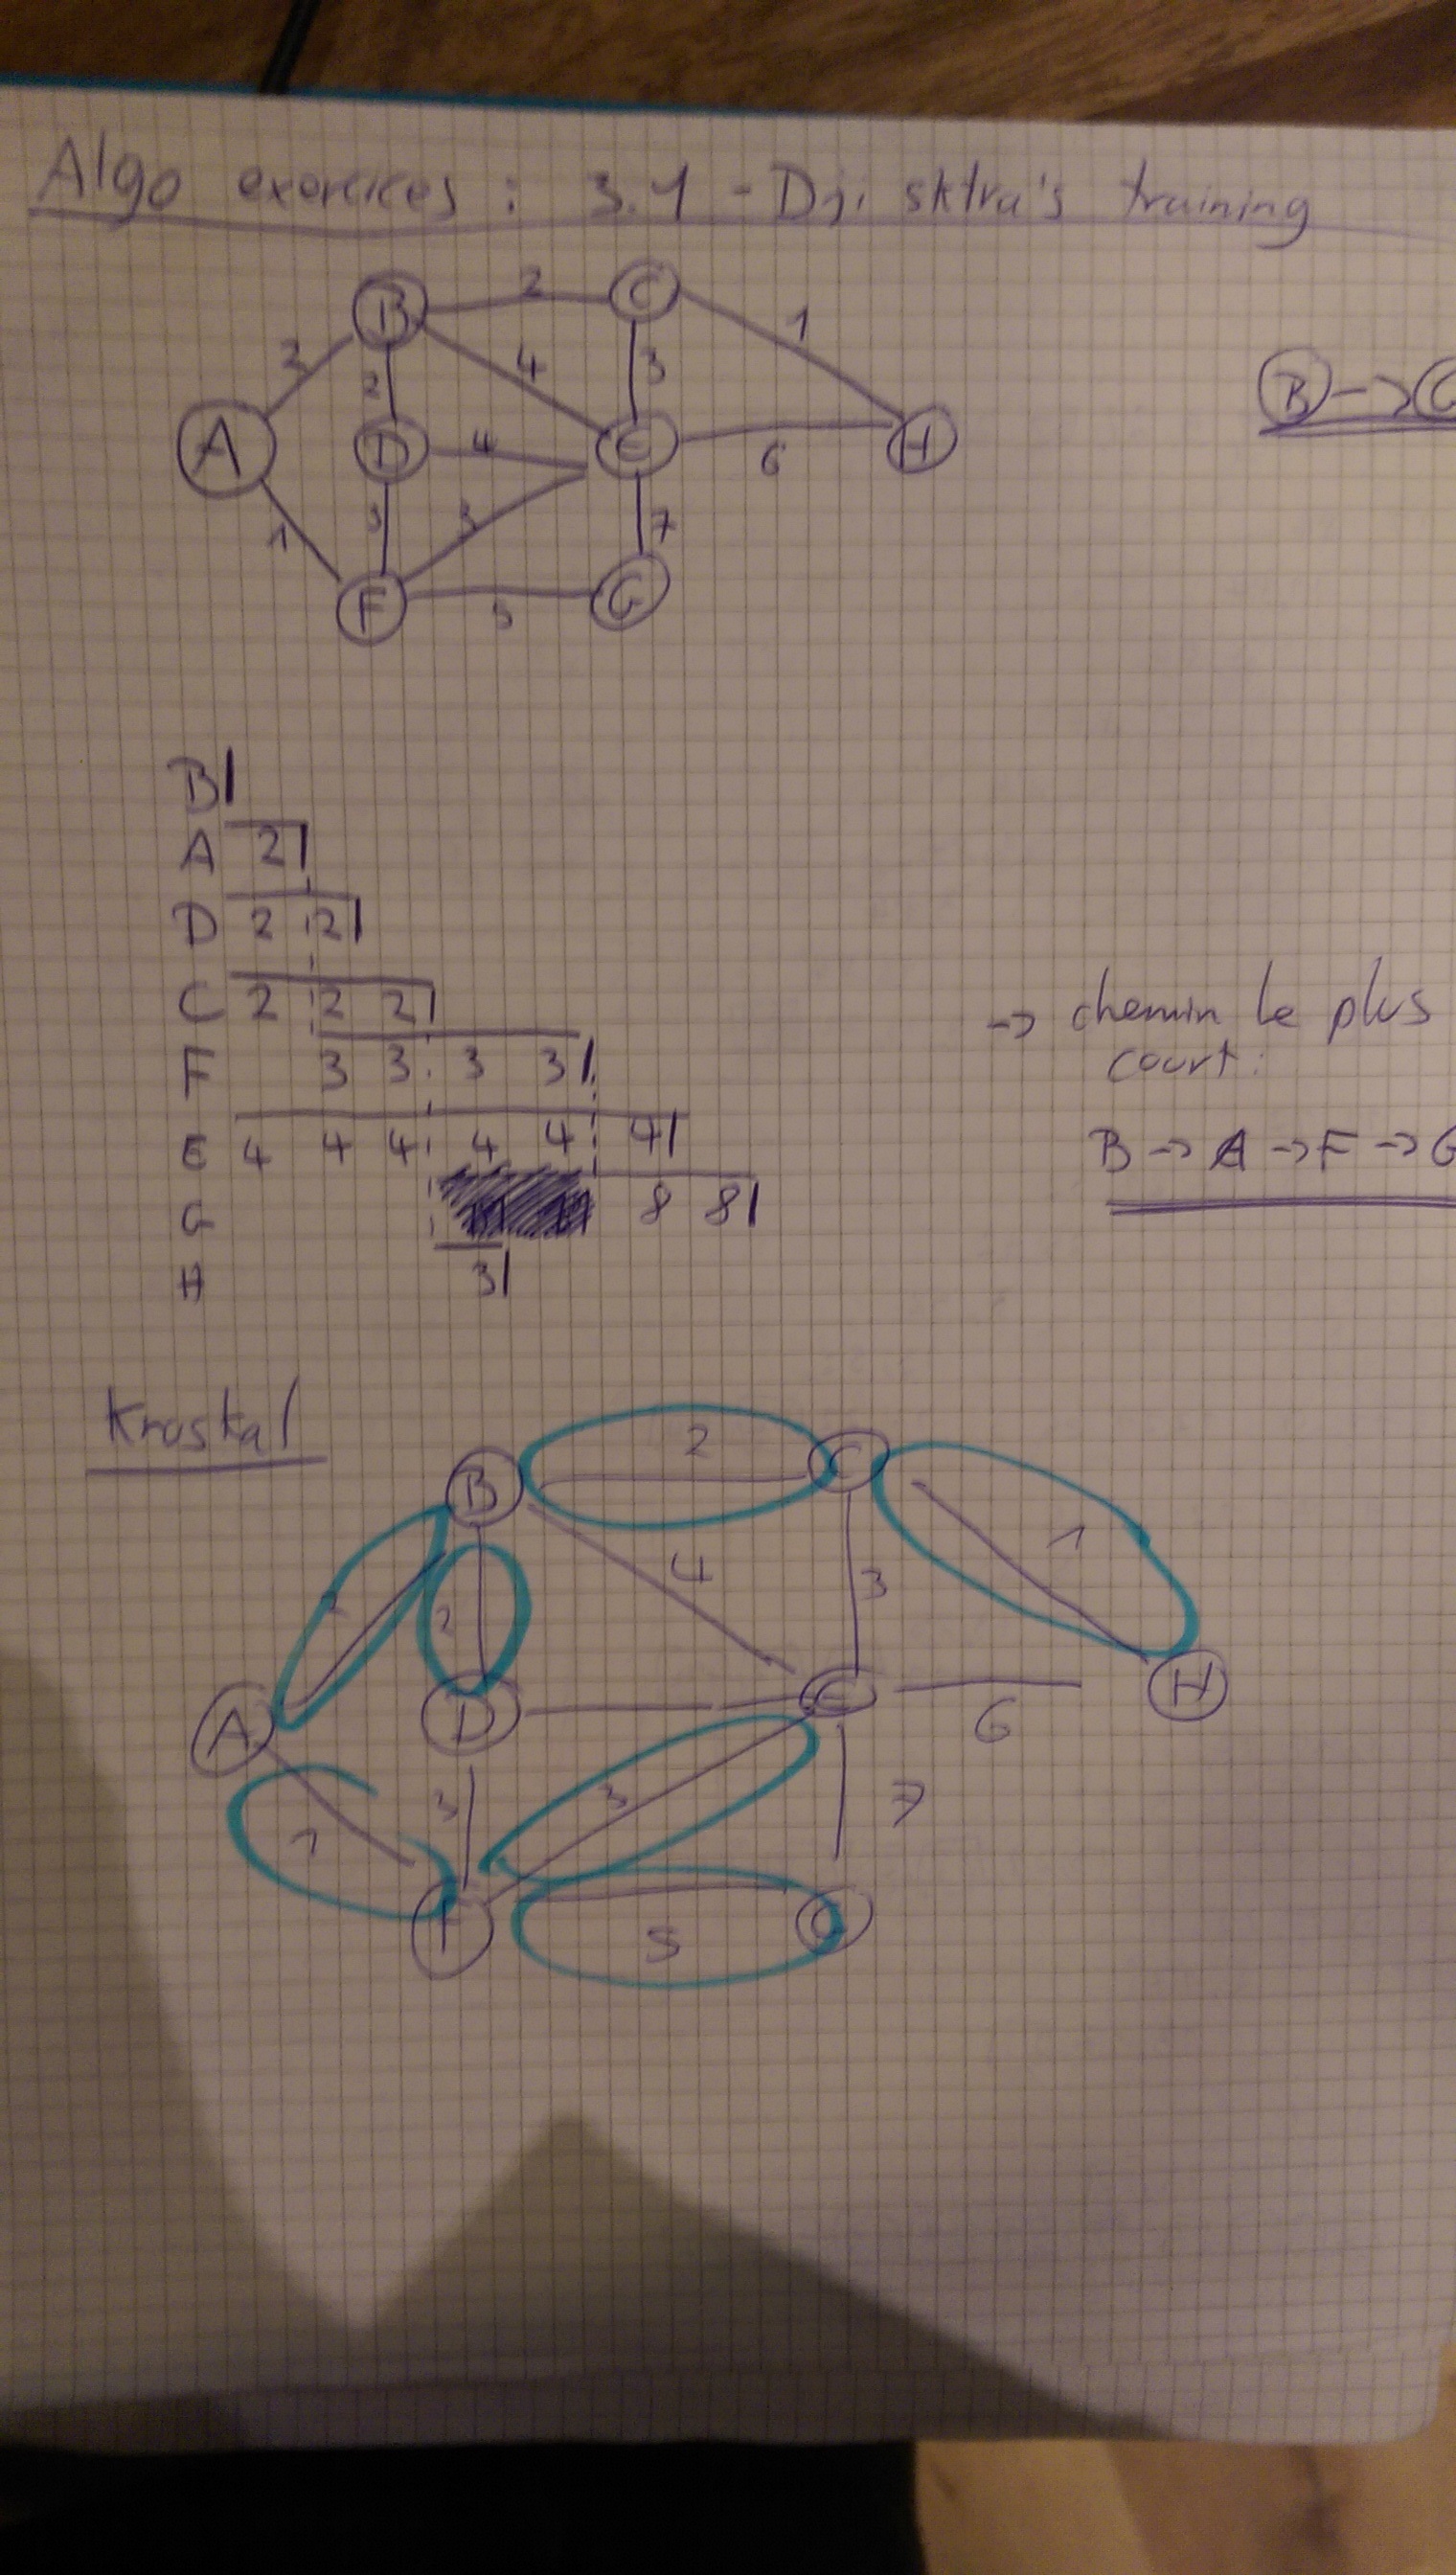 Algo exercices : 3.1 - Dji sktra's training
B 2 C
2 4 3 1
2
A D 4 E 6 H
1 3 3 7
F 5 G
B → G
B
A 2
D 2 2
C 2 2 2
F 3 3 3 3
E 4 4 4 4 4 4
G 8 8
H 3
→ chemin le plus
court :
B → A → F → G
Kruskal
B 2 C
4 3 1
2
A D E 6 H
1 3 3 7
F 5 G